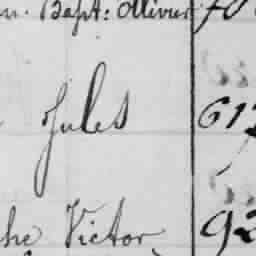 Bapt: Ollivier 70
Jules 617
Victor 92